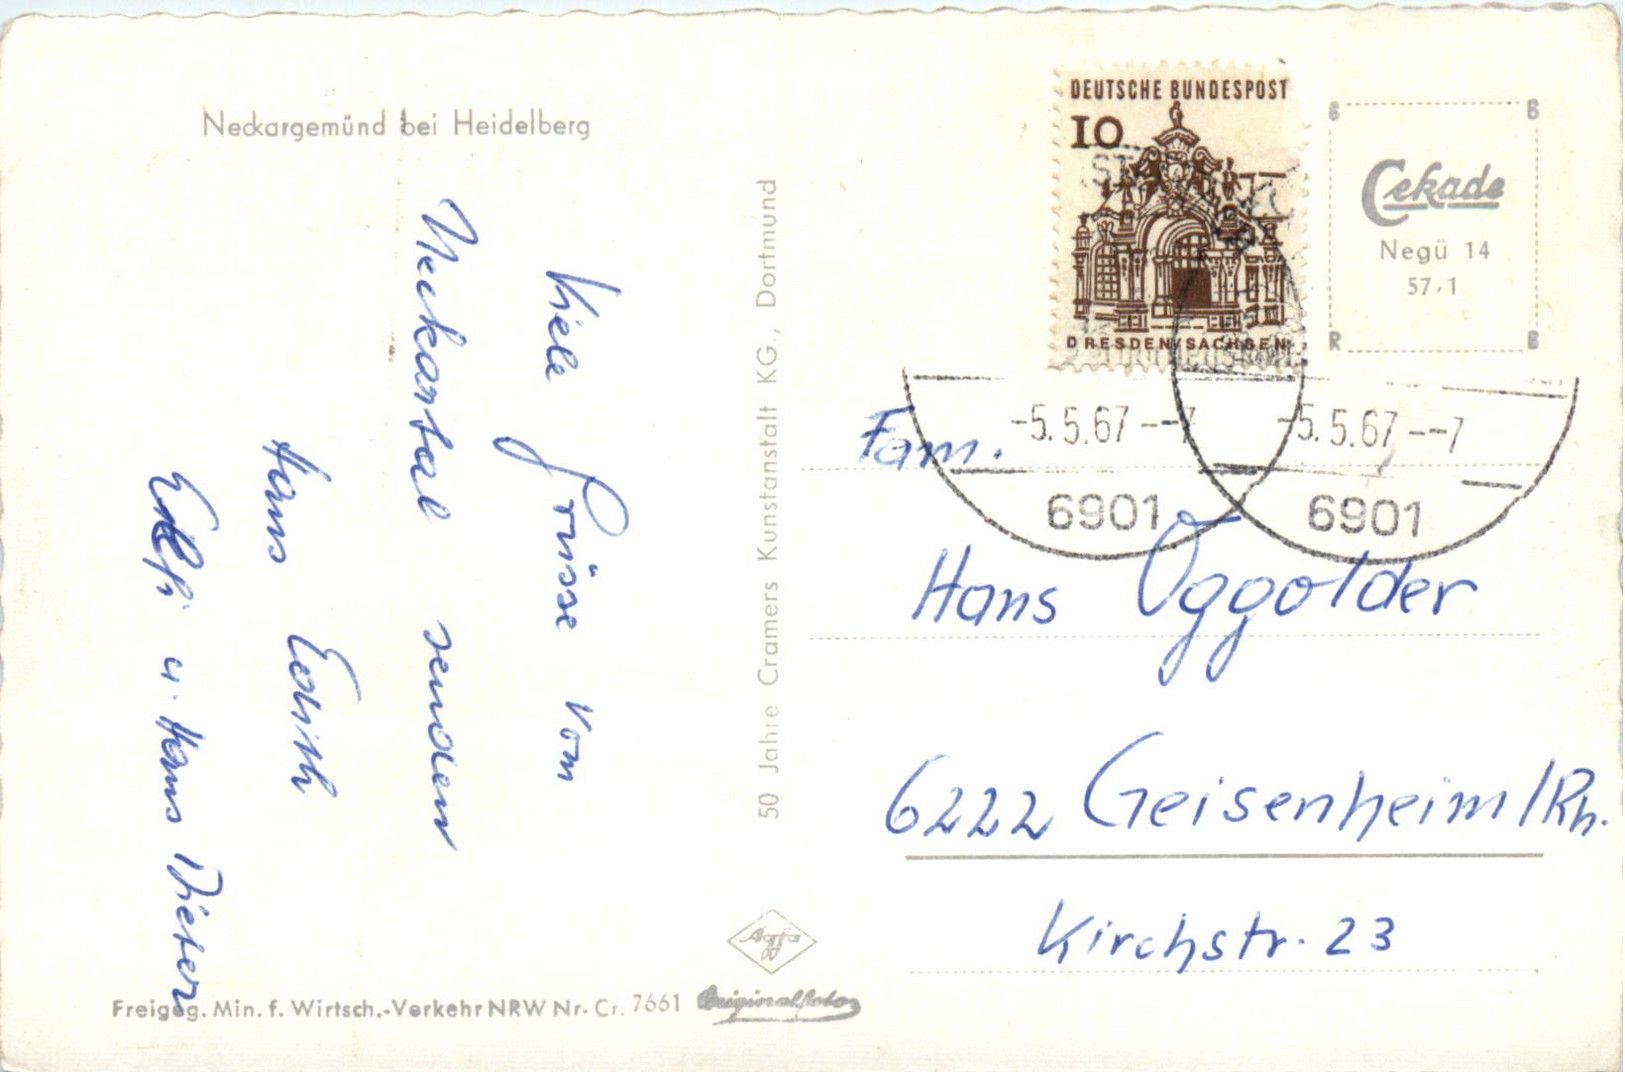 Neckargemünd bei Heidelberg
Viele Grüsse vom
Neckartal senden
Hans Edith
u. Hans Dieter
50 Jahre Cramers Kunstanstalt KG., Dortmund
Freigeg. Min. f. Wirtsch.-Verkehr NRW Nr. Cr. 7661
Agfa
Originalfoto
DEUTSCHE BUNDESPOST
10
DRESDEN/SACHSEN
B B
Cekade
Negü 14
57/1
R B
-5.5.67--7
6901
-5.5.67--7
6901
Fam.
Hans Oggolder
6222 Geisenheim/Rh.
Kirchstr. 23